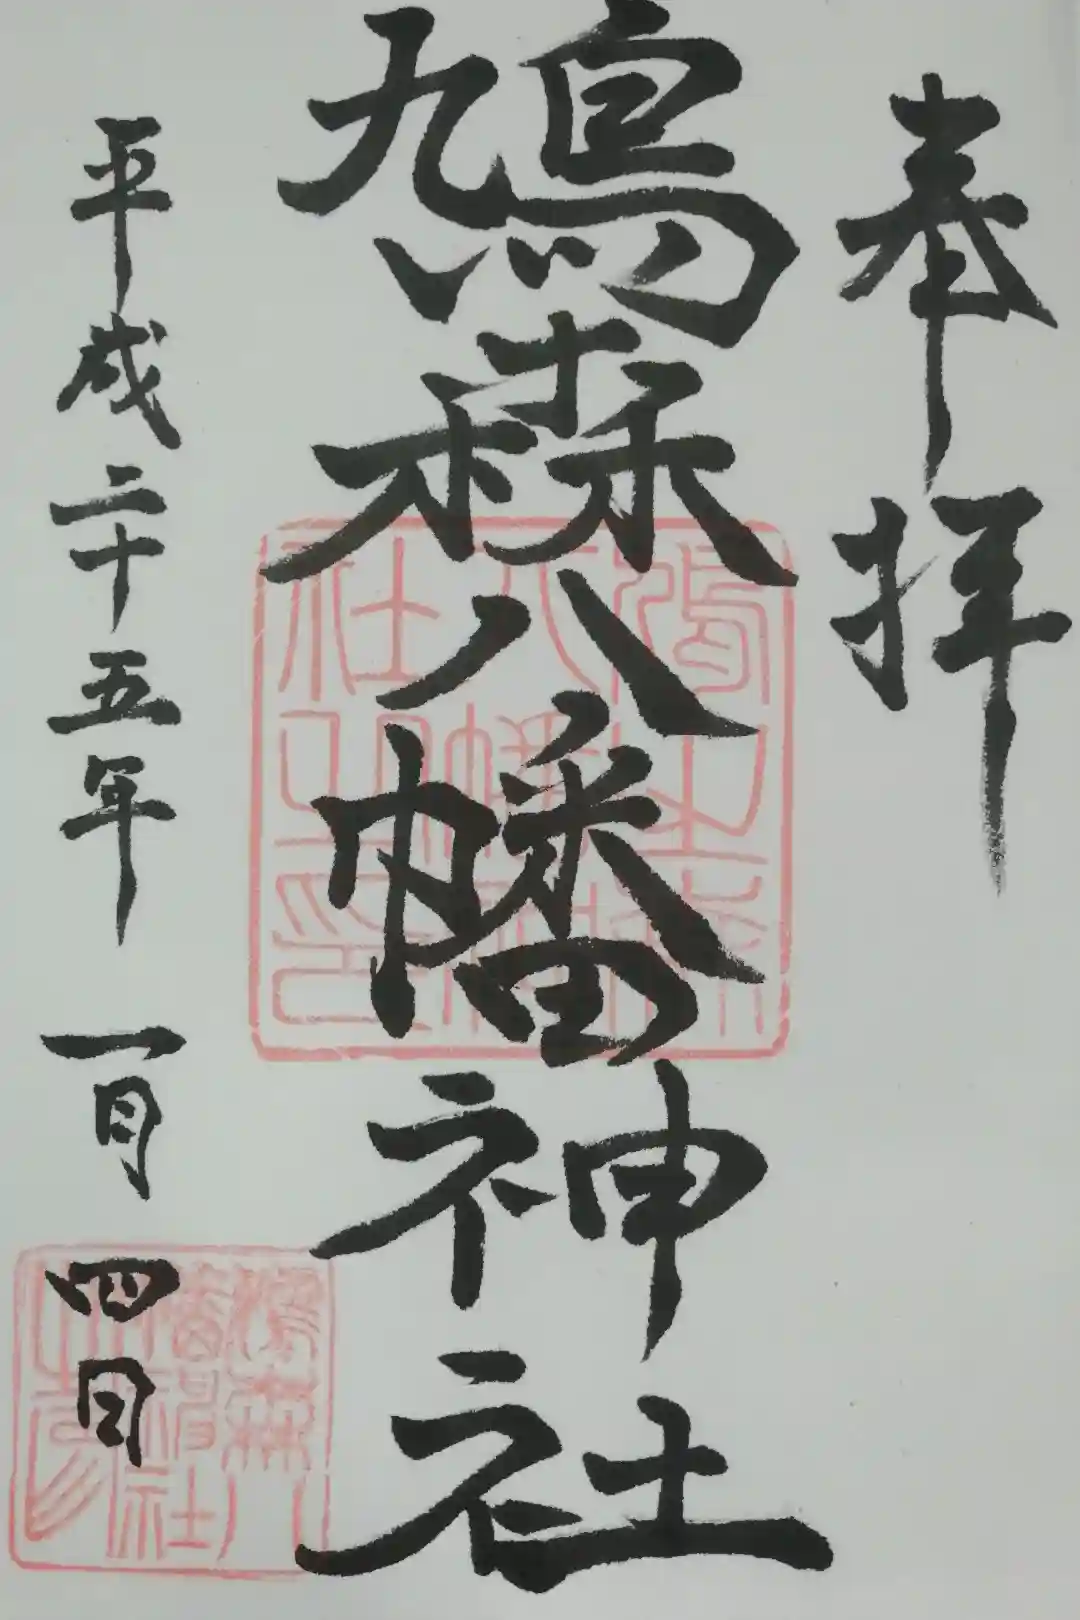 奉拝
鳩森八幡神社
平成二十五年 一月 四日